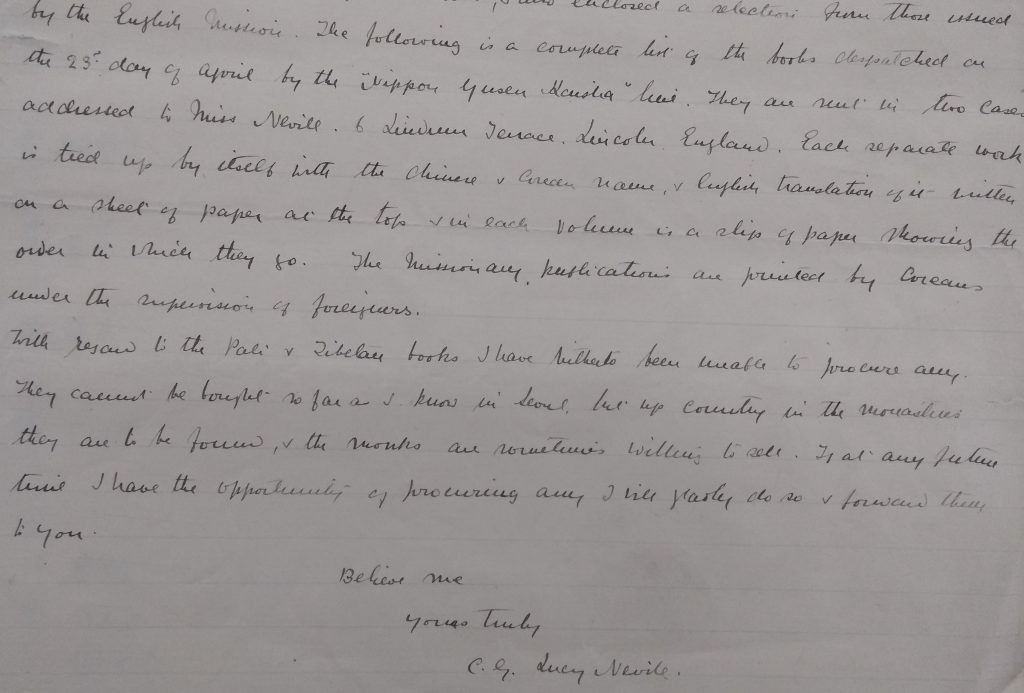 enclosed a selection from those issued
by the English Mission. The following is a complete list of the books despatched on
the 23rd day of April by the "Nippon Yusen Kaisha" line. They are sent in two cases
addressed to Miss Nevile. 6 Lindum Terrace. Lincoln. England. Each separate work
is tied up by itself with the Chinese & Corean name, & English translation of it written
on a sheet of paper at the top & in each volume is a slip of paper showing the
order in which they go. The Missionary publications are printed by Coreans
under the supervision of foreigners.
With regard to the Pali & Tibetan books I have hitherto been unable to procure any.
They cannot be bought so far as I know in Seoul, but up country in the monasteries
they are to be found, & the monks are sometimes willing to sell. If at any future
time I have the opportunity of procuring any I will gladly do so & forward them
to you.
Believe me
Yours truly
C. G. Lucy Nevile.